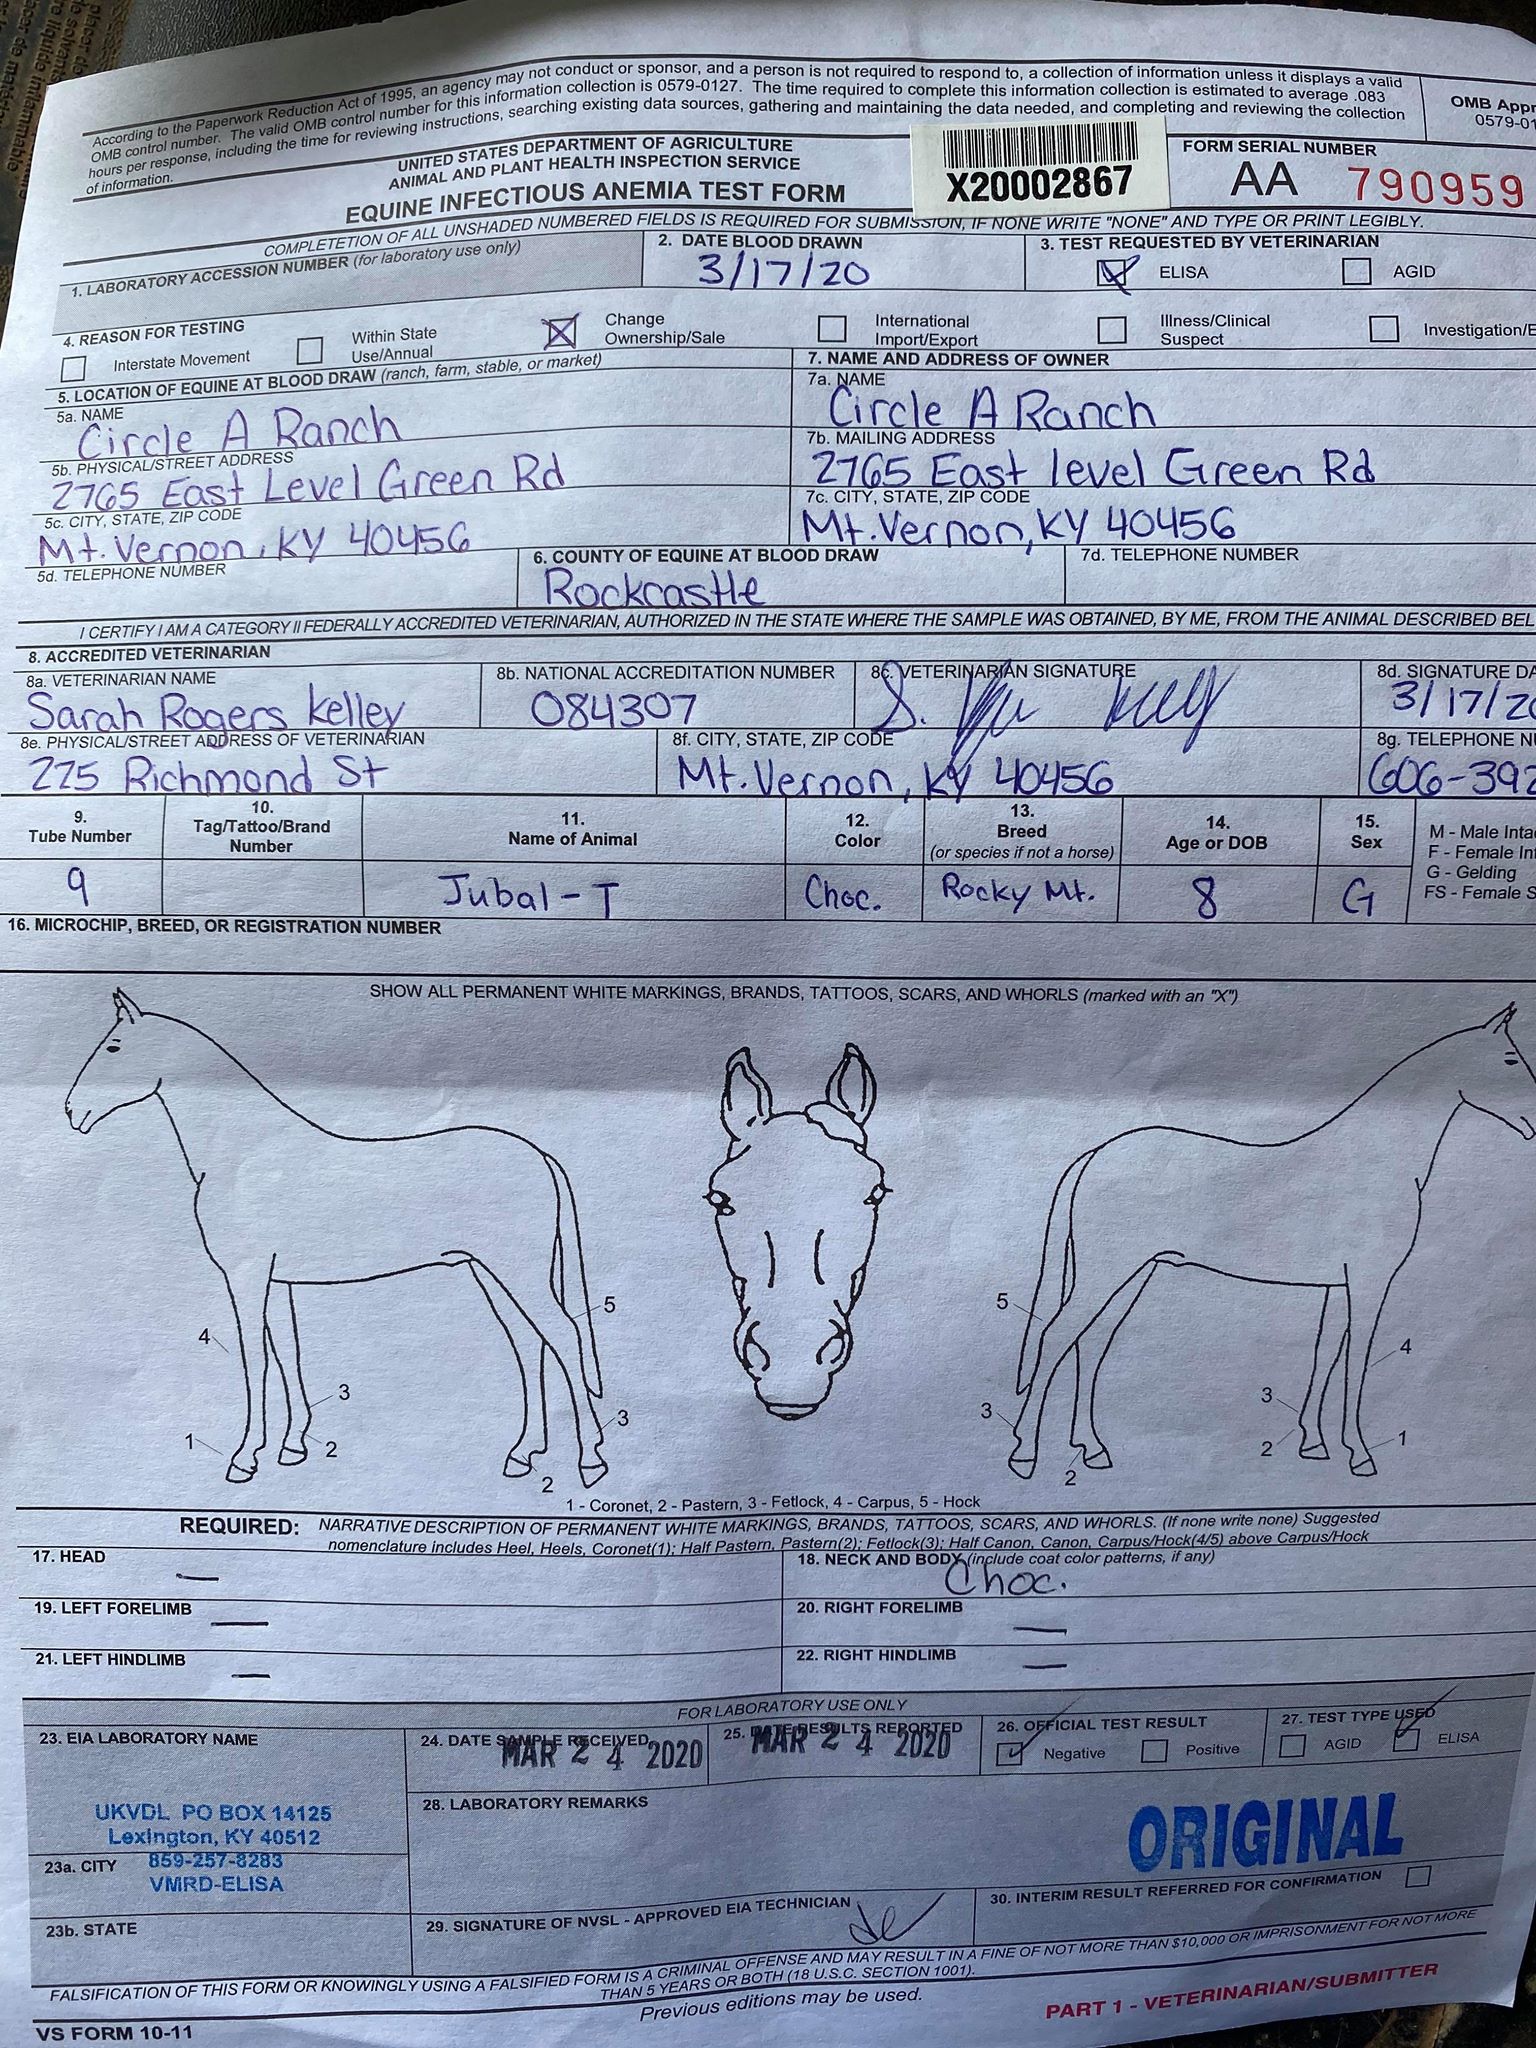 According to the Paperwork Reduction Act of 1995, an agency may not conduct or sponsor, and a person is not required to respond to, a collection of information unless it displays a valid
OMB control number. The valid OMB control number for this information collection is 0579-0127. The time required to complete this information collection is estimated to average .083
hours per response, including the time for reviewing instructions, searching existing data sources, gathering and maintaining the data needed, and completing and reviewing the collection
of information.
OMB Appr
0579-01
UNITED STATES DEPARTMENT OF AGRICULTURE
ANIMAL AND PLANT HEALTH INSPECTION SERVICE
EQUINE INFECTIOUS ANEMIA TEST FORM
X20002867
FORM SERIAL NUMBER
AA 790959
COMPLETETION OF ALL UNSHADED NUMBERED FIELDS IS REQUIRED FOR SUBMISSION, IF NONE WRITE "NONE" AND TYPE OR PRINT LEGIBLY.
1. LABORATORY ACCESSION NUMBER (for laboratory use only)
2. DATE BLOOD DRAWN
3/17/20
3. TEST REQUESTED BY VETERINARIAN
ELISA
AGID
4. REASON FOR TESTING
Interstate Movement
Within State
Use/Annual
Change
Ownership/Sale
International
Import/Export
Illness/Clinical
Suspect
Investigation/E
5. LOCATION OF EQUINE AT BLOOD DRAW (ranch, farm, stable, or market)
5a. NAME
Circle A Ranch
5b. PHYSICAL/STREET ADDRESS
2765 East Level Green Rd
5c. CITY, STATE, ZIP CODE
Mt. Vernon, KY 40456
5d. TELEPHONE NUMBER
6. COUNTY OF EQUINE AT BLOOD DRAW
Rockcastle
7. NAME AND ADDRESS OF OWNER
7a. NAME
Circle A Ranch
7b. MAILING ADDRESS
2765 East level Green Rd
7c. CITY, STATE, ZIP CODE
Mt. Vernon, KY 40456
7d. TELEPHONE NUMBER
I CERTIFY I AM A CATEGORY II FEDERALLY ACCREDITED VETERINARIAN, AUTHORIZED IN THE STATE WHERE THE SAMPLE WAS OBTAINED, BY ME, FROM THE ANIMAL DESCRIBED BEL
8. ACCREDITED VETERINARIAN
8a. VETERINARIAN NAME
Sarah Rogers Kelley
8b. NATIONAL ACCREDITATION NUMBER
084307
8c. VETERINARIAN SIGNATURE
8d. SIGNATURE DA
3/17/20
8e. PHYSICAL/STREET ADDRESS OF VETERINARIAN
225 Richmond St
8f. CITY, STATE, ZIP CODE
Mt. Vernon, KY 40456
8g. TELEPHONE NU
606-392
9.
Tube Number
9
10.
Tag/Tattoo/Brand
Number
11.
Name of Animal
Jubal-T
12.
Color
Choc.
13.
Breed
(or species if not a horse)
Rocky Mt.
14.
Age or DOB
8
15.
Sex
G
M - Male Inta
F - Female Int
G - Gelding
FS - Female S
16. MICROCHIP, BREED, OR REGISTRATION NUMBER
SHOW ALL PERMANENT WHITE MARKINGS, BRANDS, TATTOOS, SCARS, AND WHORLS (marked with an "X")
5
4
3
3
1
2
2
5
4
3
3
2
1
2
1 - Coronet, 2 - Pastern, 3 - Fetlock, 4 - Carpus, 5 - Hock
REQUIRED: NARRATIVE DESCRIPTION OF PERMANENT WHITE MARKINGS, BRANDS, TATTOOS, SCARS, AND WHORLS. (If none write none) Suggested
nomenclature includes Heel, Heels, Coronet(1); Half Pastern, Pastern(2); Fetlock(3); Half Canon, Canon, Carpus/Hock(4/5) above Carpus/Hock
17. HEAD
—
18. NECK AND BODY (include coat color patterns, if any)
Choc.
19. LEFT FORELIMB
—
20. RIGHT FORELIMB
—
21. LEFT HINDLIMB
—
22. RIGHT HINDLIMB
—
FOR LABORATORY USE ONLY
23. EIA LABORATORY NAME
UKVDL PO BOX 14125
Lexington, KY 40512
23a. CITY
859-257-8283
VMRD-ELISA
23b. STATE
24. DATE SAMPLE RECEIVED
MAR 24 2020
25. DATE RESULTS REPORTED
MAR 24 2020
26. OFFICIAL TEST RESULT
Negative
Positive
27. TEST TYPE USED
AGID
ELISA
28. LABORATORY REMARKS
ORIGINAL
29. SIGNATURE OF NVSL - APPROVED EIA TECHNICIAN
30. INTERIM RESULT REFERRED FOR CONFIRMATION
FALSIFICATION OF THIS FORM OR KNOWINGLY USING A FALSIFIED FORM IS A CRIMINAL OFFENSE AND MAY RESULT IN A FINE OF NOT MORE THAN $10,000 OR IMPRISONMENT FOR NOT MORE
THAN 5 YEARS OR BOTH (18 U.S.C. SECTION 1001).
Previous editions may be used.
VS FORM 10-11
PART 1 - VETERINARIAN/SUBMITTER